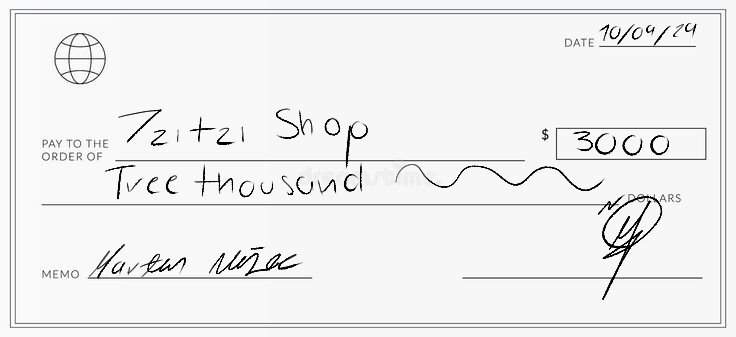 DATE 10/09/29
PAY TO THE
ORDER OF Tzitzi Shop $ 3000
Tree thousand DOLLARS
MEMO